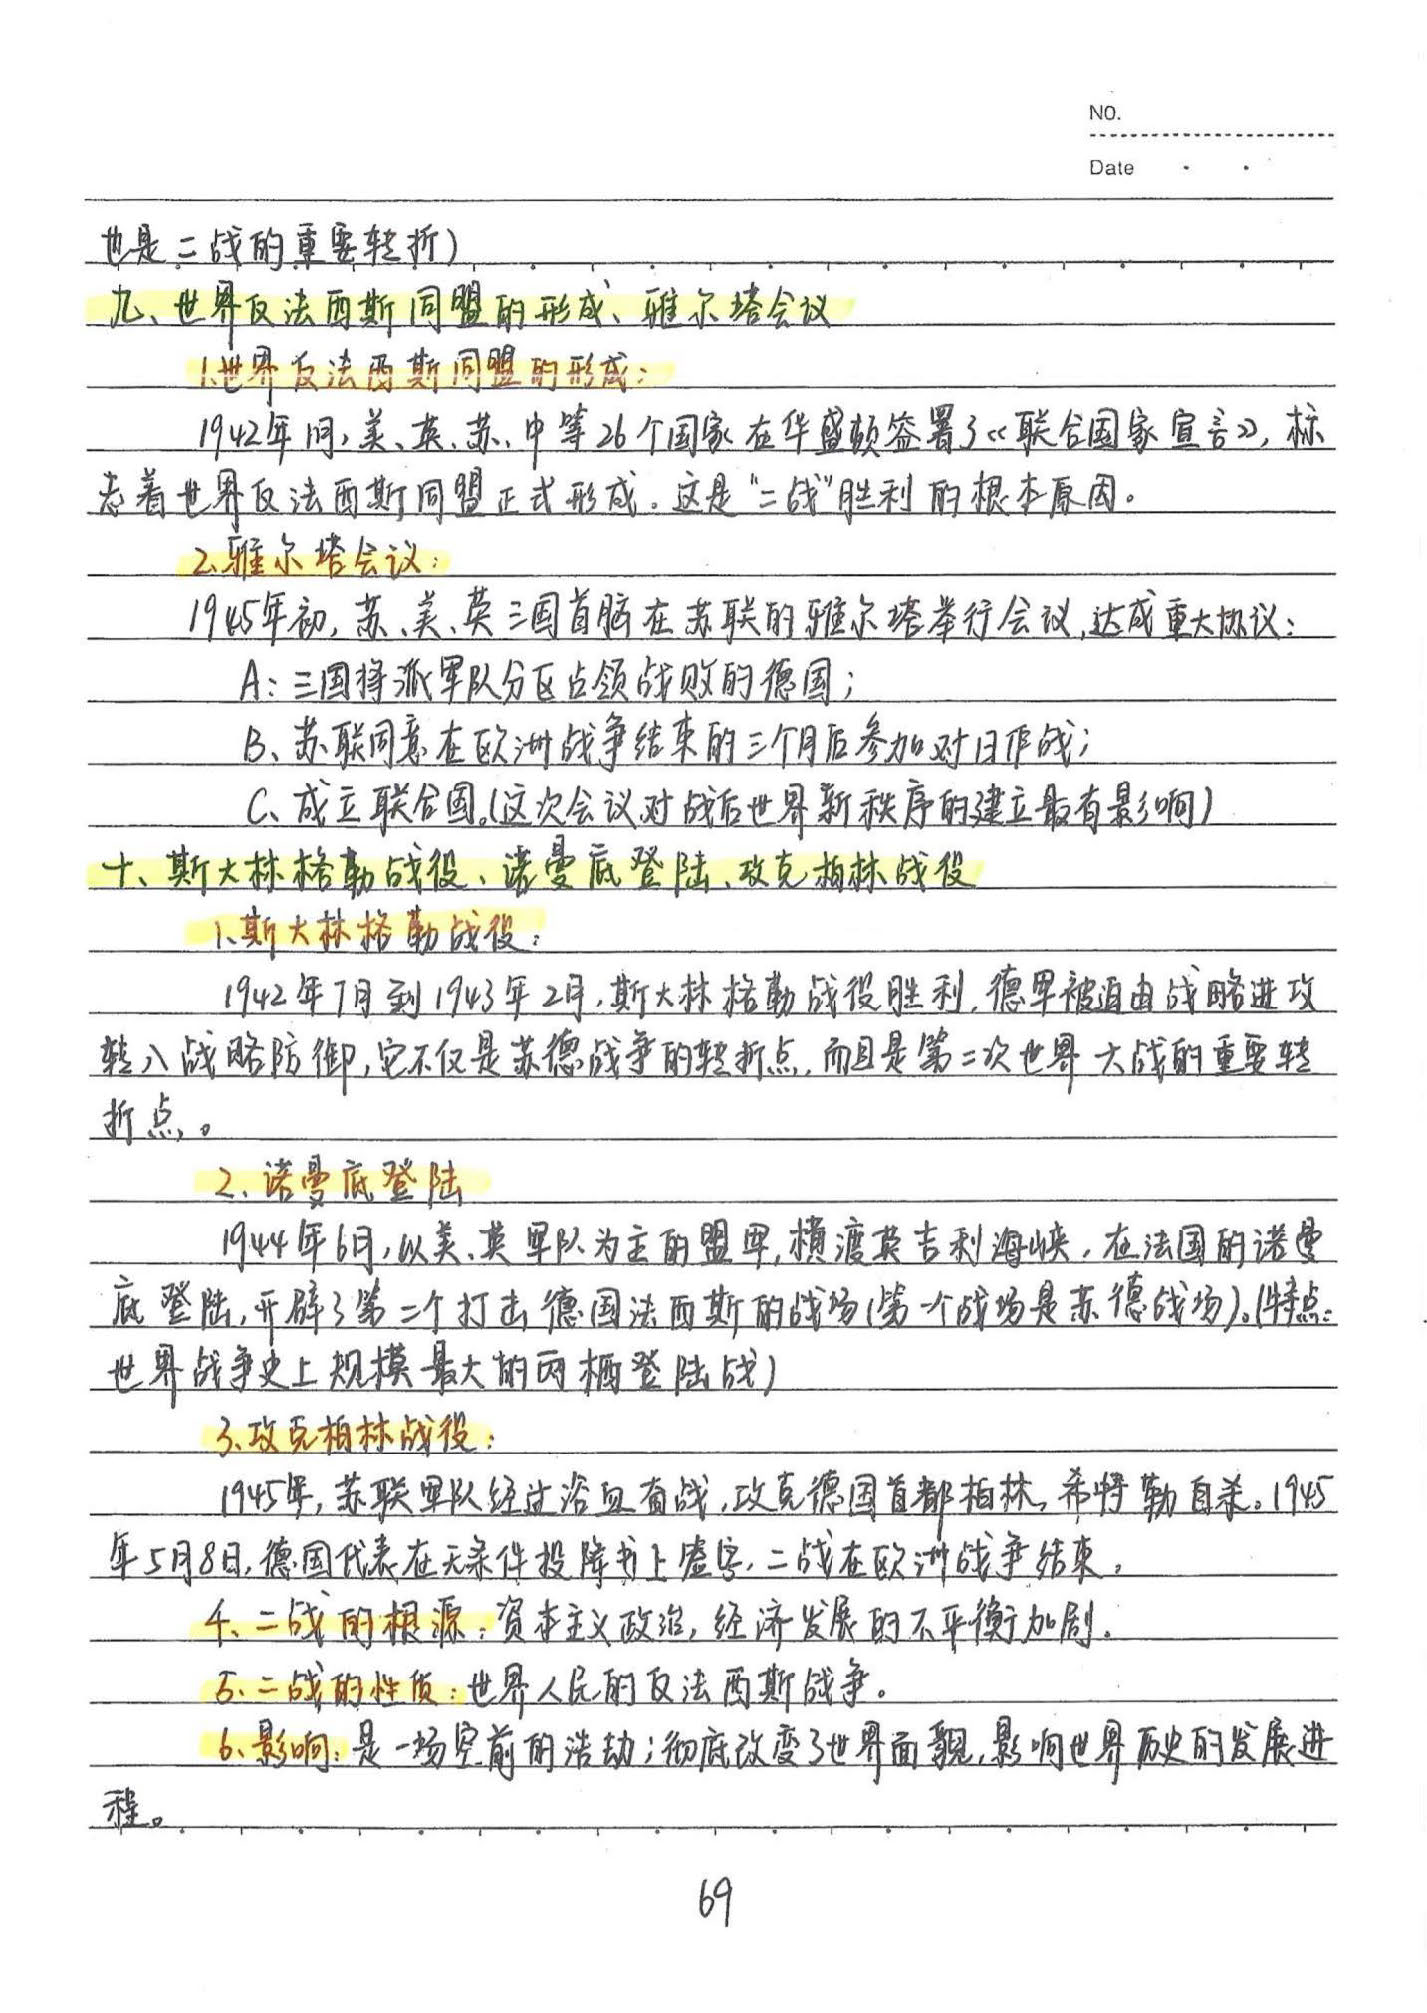 NO.
Date
也是二战的重要转折)
九、世界反法西斯同盟的形成、雅尔塔会议
1.世界反法西斯同盟的形成:
1942年1月,美、英、苏、中等26个国家在华盛顿签署了《联合国家宣言》,标
志着世界反法西斯同盟正式形成。这是“二战”胜利的根本原因。
2.雅尔塔会议:
1945年初,苏、美、英三国首脑在苏联的雅尔塔举行会议,达成重大协议:
A:三国将派军队分区占领战败的德国;
B、苏联同意在欧洲战争结束的三个月后参加对日作战;
C、成立联合国。(这次会议对战后世界新秩序的建立最有影响)
十、斯大林格勒战役、诺曼底登陆、攻克柏林战役
1、斯大林格勒战役:
1942年7月到1943年2月,斯大林格勒战役胜利,德军被迫由战略进攻
转入战略防御,它不仅是苏德战争的转折点,而且是第二次世界大战的重要转
折点。
2、诺曼底登陆
1944年6月,以美、英军队为主的盟军,横渡英吉利海峡,在法国的诺曼
底登陆,开辟了第二个打击德国法西斯的战场(第一个战场是苏德战场)。(特点:
世界战争史上规模最大的两栖登陆战)
3、攻克柏林战役:
1945年,苏联军队经过浴血奋战,攻克德国首都柏林,希特勒自杀。1945
年5月8日,德国代表在无条件投降书上签字,二战在欧洲战争结束。
4、二战的根源:资本主义政治,经济发展的不平衡加剧。
5、二战的性质:世界人民的反法西斯战争。
6、影响:是一场空前的浩劫;彻底改变了世界面貌,影响世界历史的发展进
程。
69